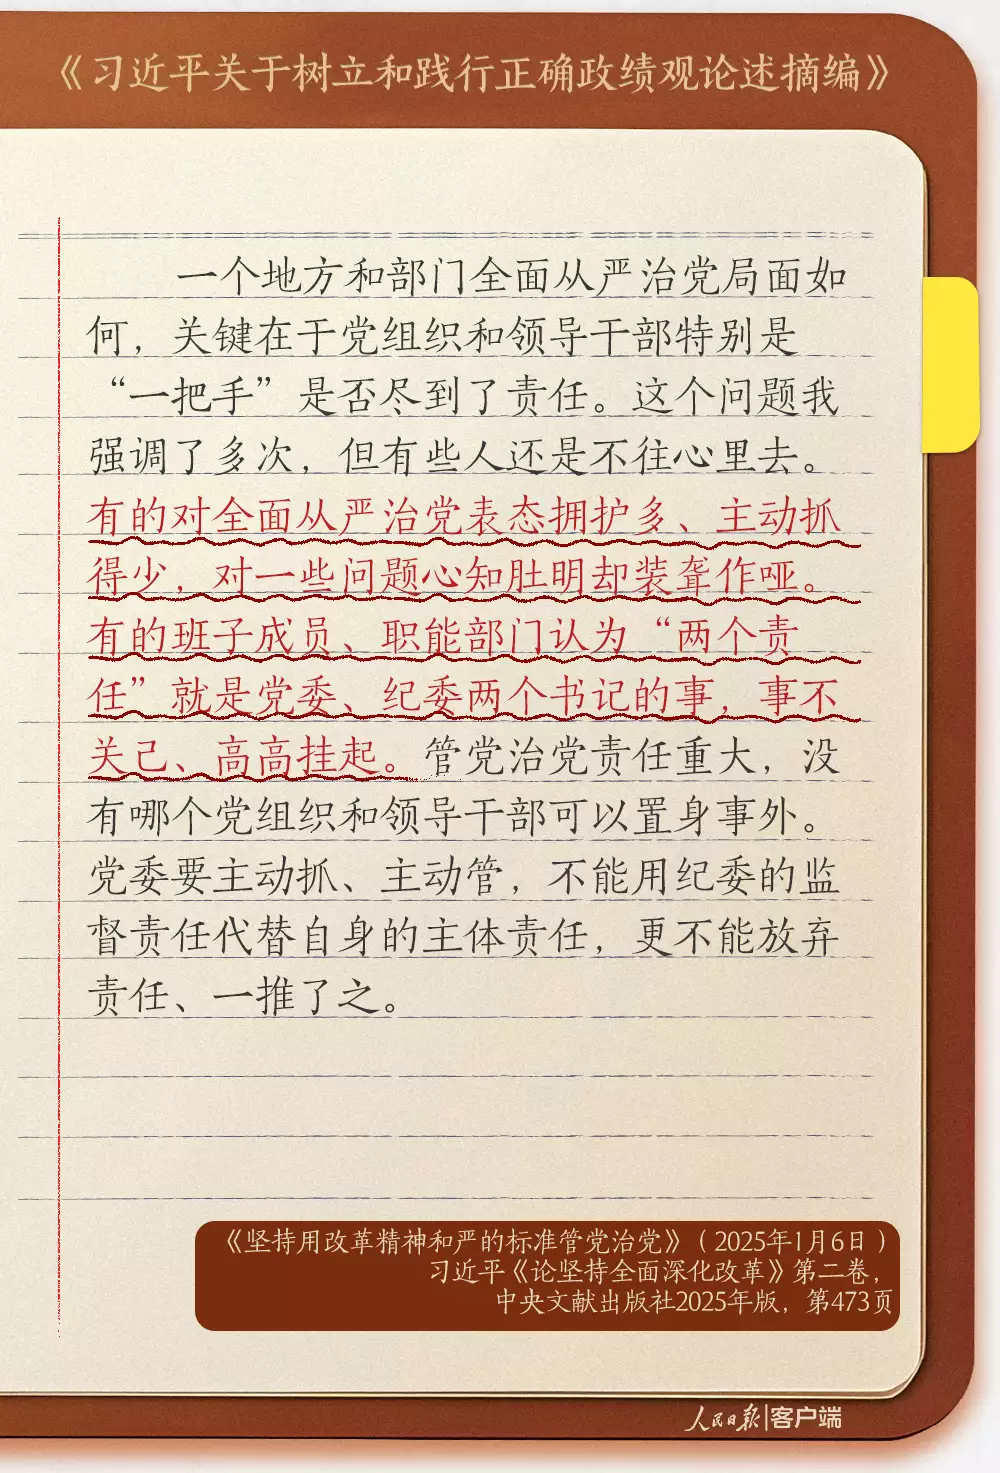 《习近平关于树立和践行正确政绩观论述摘编》
一个地方和部门全面从严治党局面如
何，关键在于党组织和领导干部特别是
“一把手”是否尽到了责任。这个问题我
强调了多次，但有些人还是不往心里去。
有的对全面从严治党表态拥护多、主动抓
得少，对一些问题心知肚明却装聋作哑。
有的班子成员、职能部门认为“两个责
任”就是党委、纪委两个书记的事，事不
关己、高高挂起。管党治党责任重大，没
有哪个党组织和领导干部可以置身事外。
党委要主动抓、主动管，不能用纪委的监
督责任代替自身的主体责任，更不能放弃
责任、一推了之。
《坚持用改革精神和严的标准管党治党》（2025年1月6日）
习近平《论坚持全面深化改革》第二卷，
中央文献出版社2025年版，第473页
人民日报|客户端